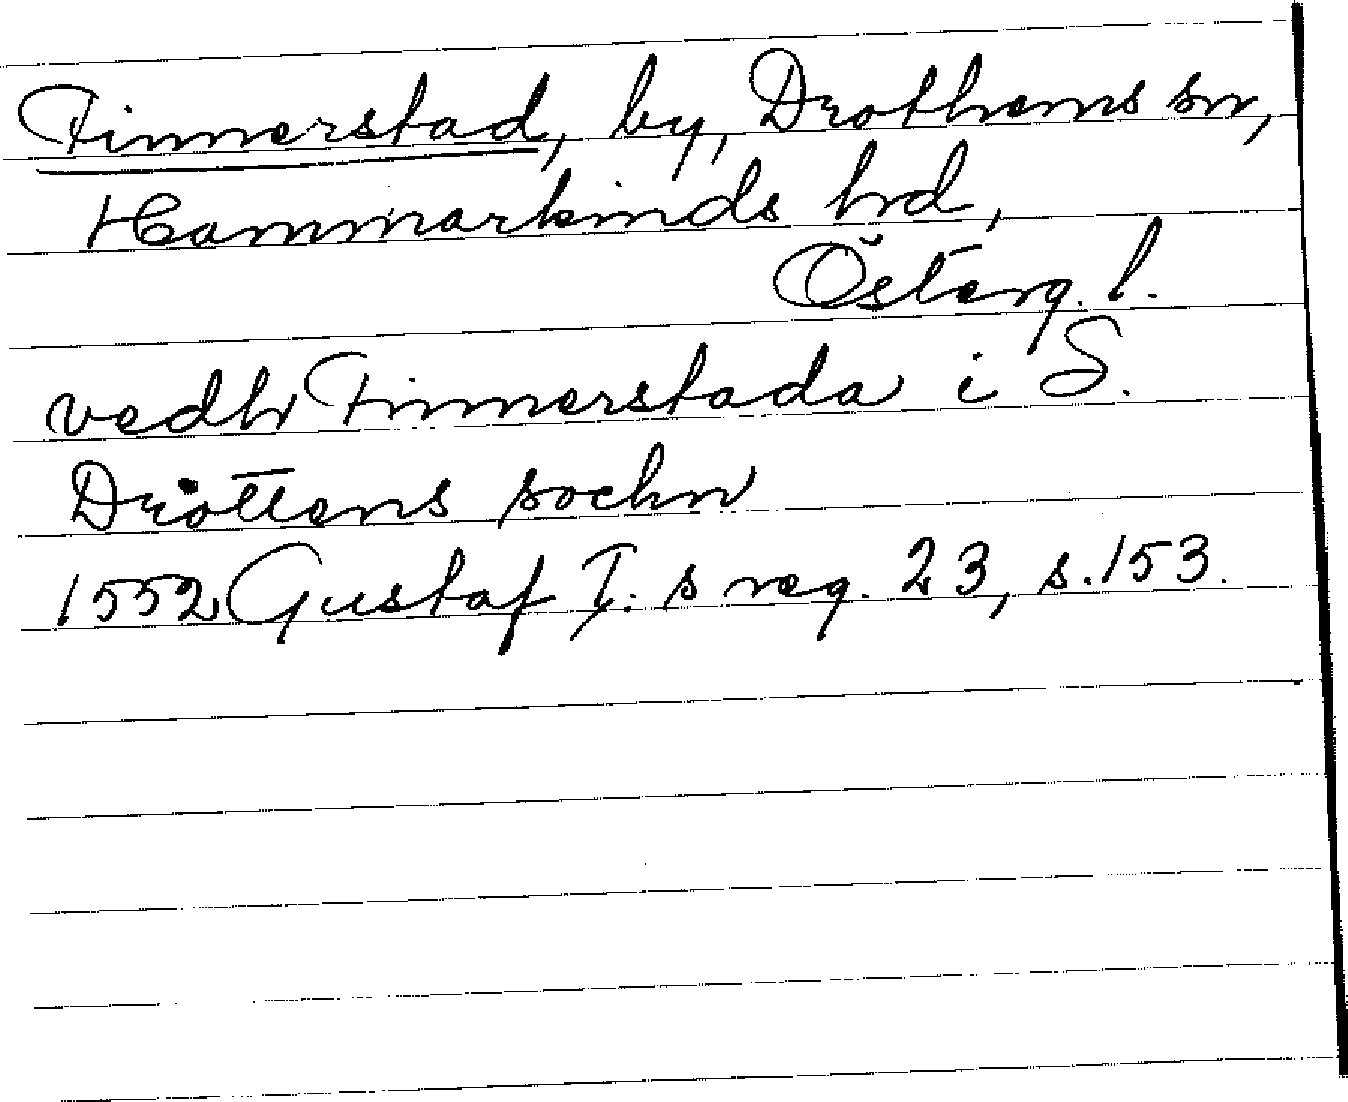 Finnerstad, by, Drothems sn,
Hammarkinds hd,
Österg. l.
vedh Finnerstada i S.
Drottens sochn
1552 Gustaf I. s reg. 23, s. 153.